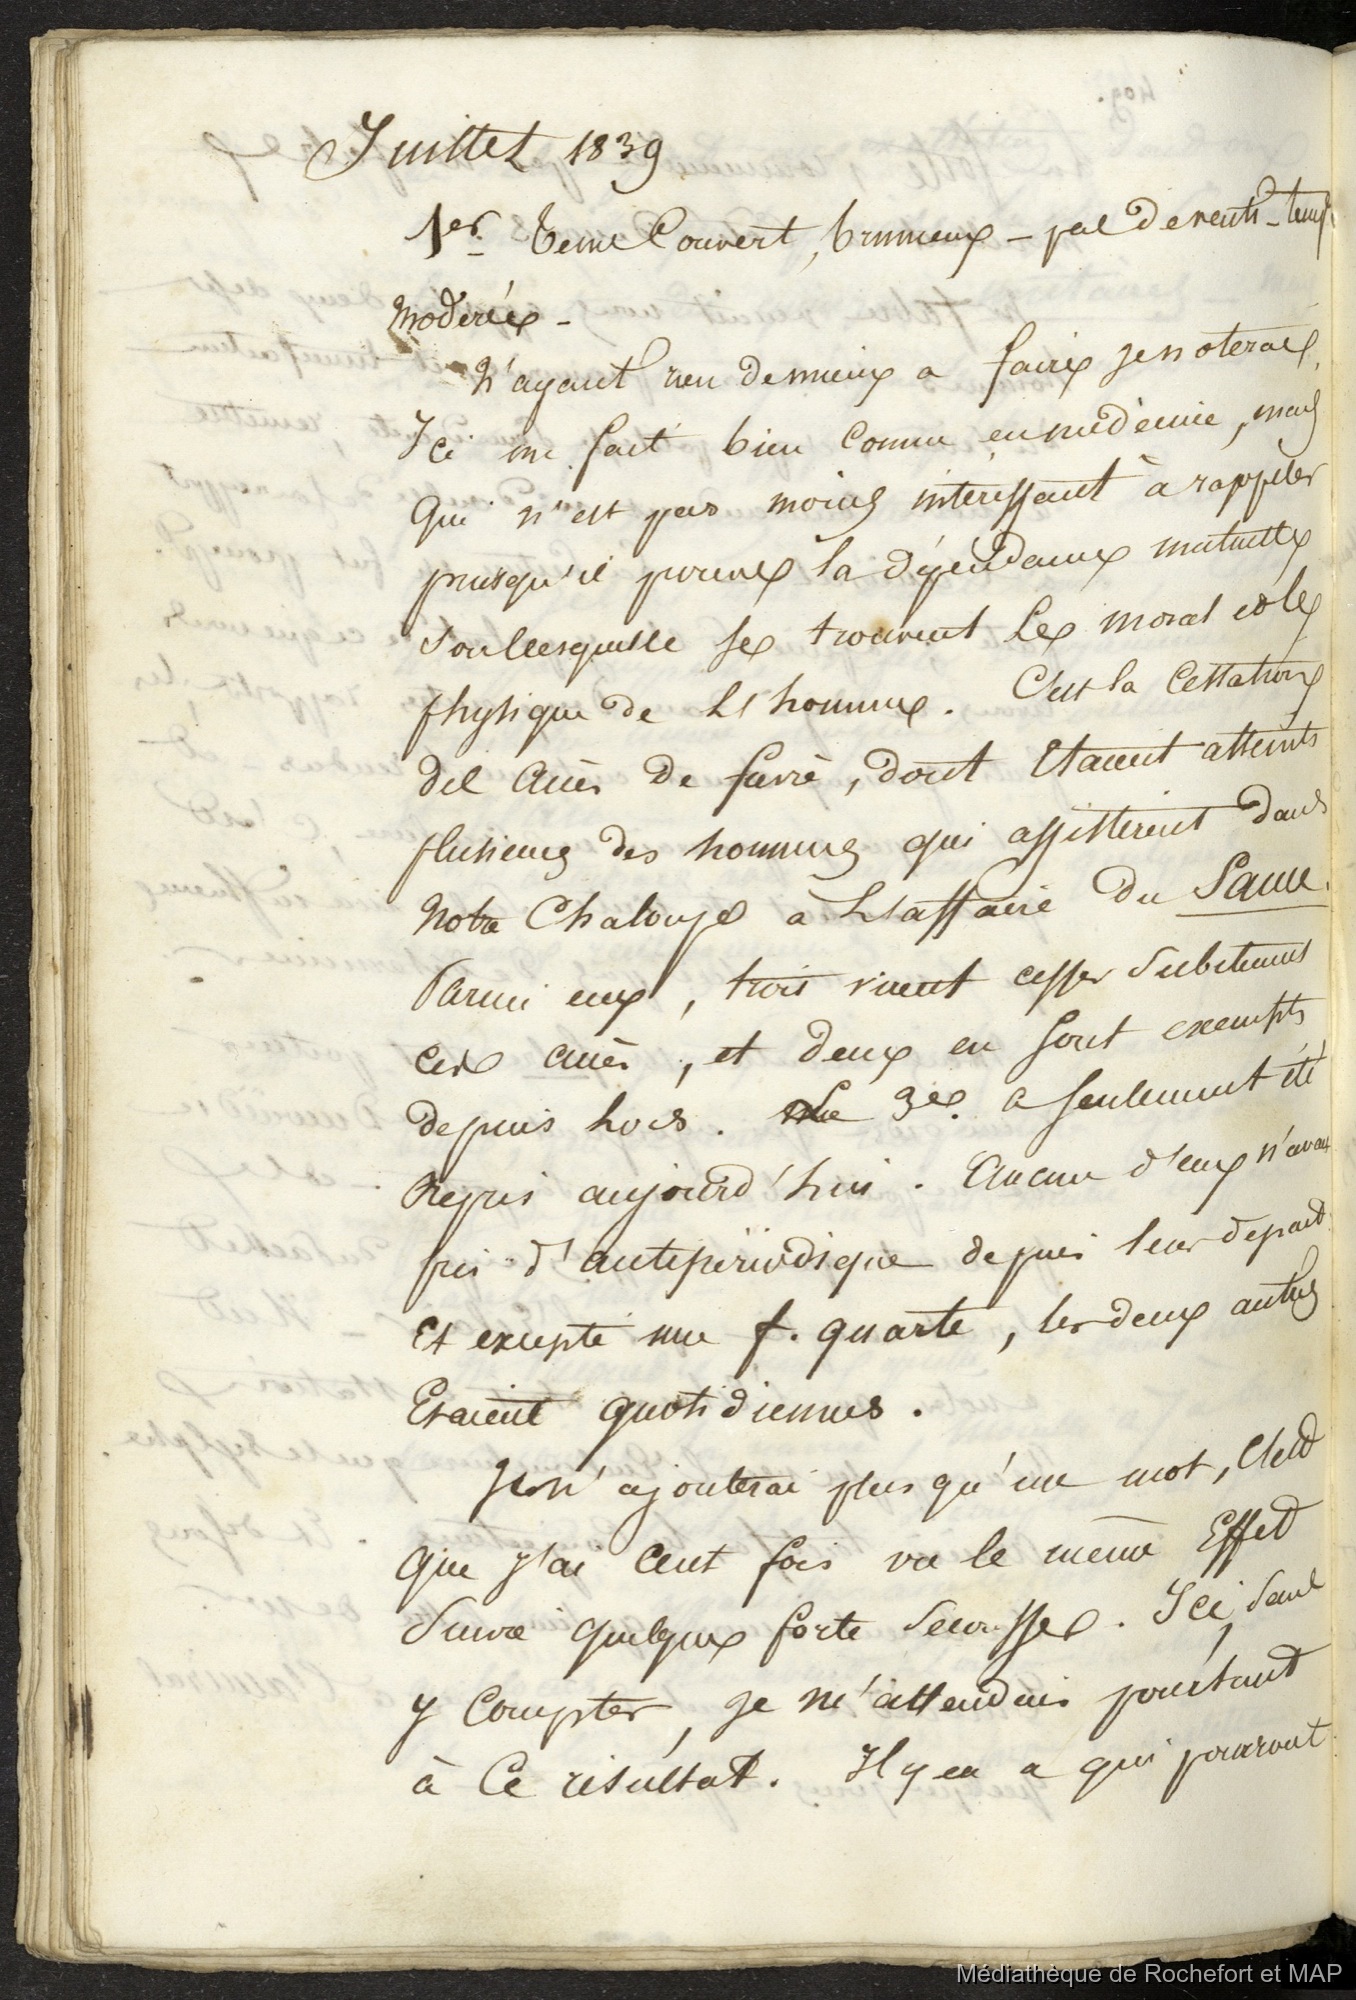 Juillet 1839
1er. Tems Couvert, brumeux - pas de vents - temp
modérée -
N'ayant rien de mieux a faire je noterai
Ici un fait bien connu en médecine, mais
qui n'est pas moins intéressant à rappeler
puisqu'il prouve la dépendance mutuelle
sous lesquelle se trouvent le moral et le
physique de l'homme. C'est la cessation
des accès de fièvre, dont étaient atteints
plusieurs des hommes qui assistèrent dans
notre Chaloupe à l'affaire du
Parmi eux, trois virent cesser subitement
ces accès, et deux en sont exempts
depuis lors. Le 3e. a seulement été
repris aujourd'hui. Aucun d'eux n'avait
pris d'antipériodique depuis leur départ.
Et excepté une f. quarte, les deux autres
Etaient quotidiennes.
Je n'ajouterai plus qu'un mot, C'est
que j'ai cent fois vu le même Effet
suivre quelque forte secousse. Ici, sans
y compter, je m'attendais pourtant
à ce résultat. Il y en a qui pourront
Médiathèque de Rochefort et MAP